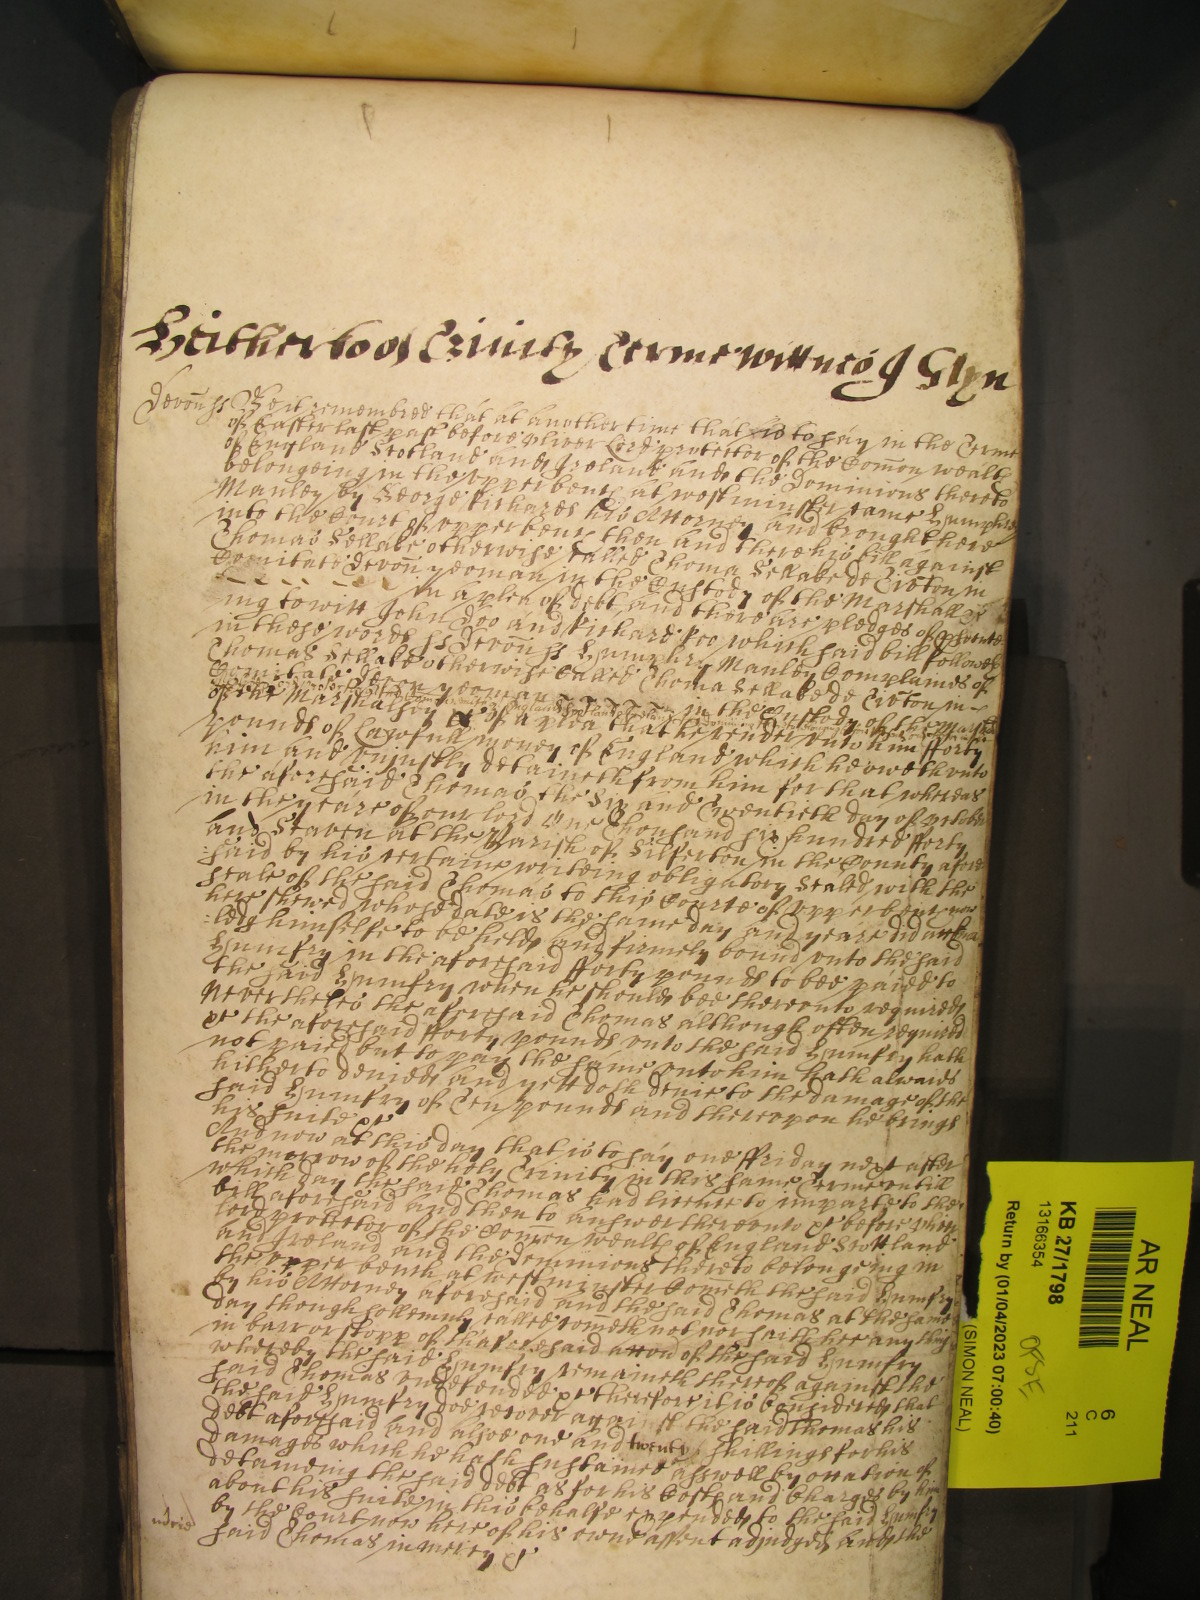 Hitherto of Trinity Terme Wittnes J Glyn
Devon ss Be it remembred that at another time that is to say in the Terme
of Easter last past before Oliver Lord protector of the Comon wealth
of England Scotland and Ireland and the Dominions thereto
belongeing in the upper bench at westminster came Humphry
Manley by George Richards his Attorney and brought here
into the Court of upper bench then and there his bill against
Thomas Sellake otherwise called Thoma Sellake de Tiv̄ton in
Comitatu Devon yeoman in the Custody of the Marshall &c
in a plea of debt and there are pledges of prosecute
ing to witt John Doo and Richard Roo which said bill followes
in these words ss Devon ss Humphry Manley Complaines of
Thomas Sellake otherwise called Thoma Sellake de Tiv̄ton in
Comitatu Devon yeoman in the Custody of the
of the Marshalsey of a plea that he render unto him fforty
pounds of Lawfull money of England which he oweth unto
him and uniustly detaineth from him for that whereas
the aforesaid Thomas the Six and Twentieth day of October
in the yeare of our lord One Thousand six hundred fforty
and Seaven at the Parish of Silferton in the County afore
said by his certaine writeing obligatory Sealed with the
seale of the said Thomas to this Courte of upper bench now
here shewed whose date is the same day and yeare did acknow
ledg himselfe to be held and firmely bound unto the said
Humfry in the aforesaid fforty pounds to bee paied to
the said Humfry when he should bee thereunto required
Neverthelės the aforesaid Thomas although often required
&c the aforesaid fforty pounds unto the said Humfry hath
not paied but to pay the same unto him hath alwaies
hitherto denied and yett doth denie to the damage of the
said Humfry of Ten pounds and thereupon he brings
his suite &c
And now at this day that is to say one ffriday next after
the morrow of the holy Trinity in this same Terme untill
which day the said Thomas had licence to imparle to the
bill aforesaid and then to answer thereunto &c before Oliver
lord protector of the Comon wealth of England Scottland
and Ireland and the Dominions thereto belongeing in
the upper bench at westminster Cometh the said Humfry
by his Attorney aforesaid and the said Thomas at the same
day though sollemnly called cometh not nor saith hee any thing
in barr or stopp of the aforesaid accōn of the said Humfry
whereby the said Humfry remaineth thereof against the
said Thomas undefended &c therefore it is Considered that
the said Humfry doe recover against the said Thomas his
debt aforesaid and alsoe one and twenty shillings for his
damages which he hath sustained asswell by occation of
detaineing the said debt as for his Costs and Charges by him
about his suite in this behalfe expended to the said Humfry
by the Court now here of his owne assent adjudged And the
said Thomas in mercy &c
AR NEAL
KB 27/1798
13166354
Return by (01/04/2023 07:00:40)
(SIMON NEAL)
6
C
211